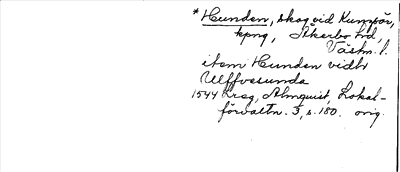 * Hunden, skog vid Kungsör,
kpng, Åkerbo hd,
Västm. l.
item Hunden vidhr
Ulffvesunda
1544 Krag, Almquist, Lokal-
förvaltn. 3, s. 180. orig.